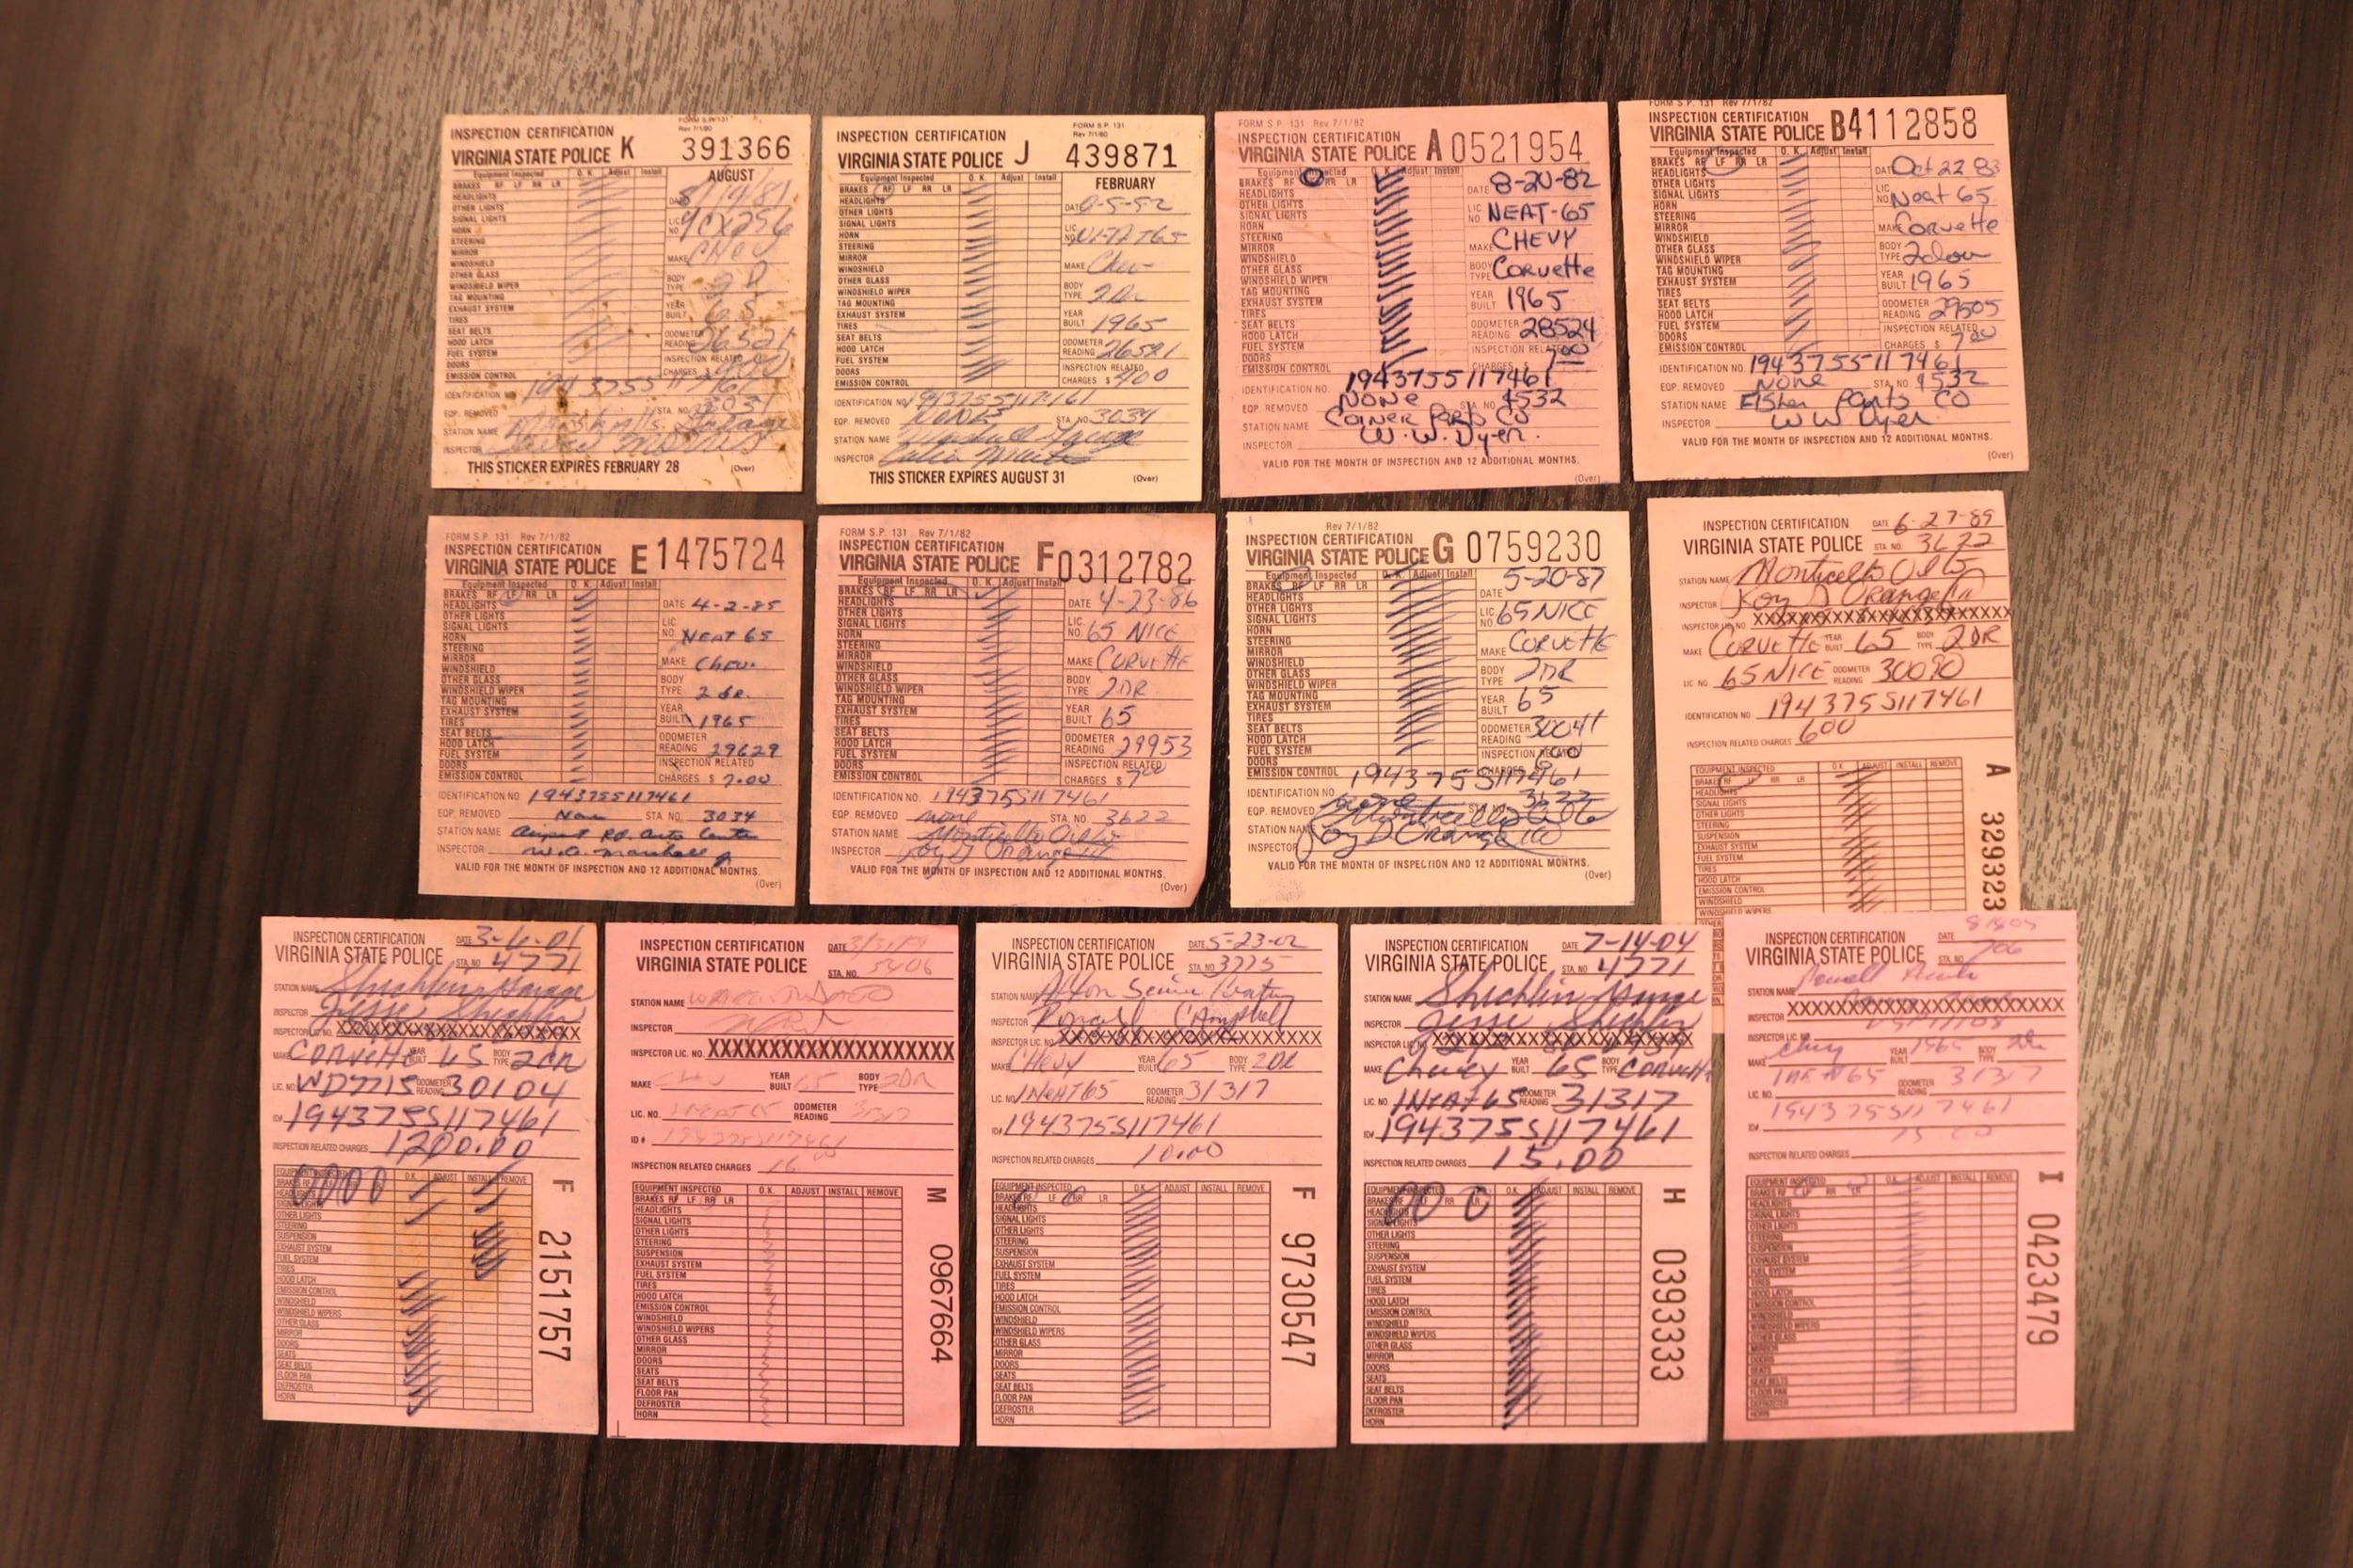 FORM S.P. 131
Rev 7/1/80
INSPECTION CERTIFICATION
VIRGINIA STATE POLICE K 391366
Equipment Inspected O.K. Adjust Install
AUGUST
BRAKES RF LF RR LR
HEADLIGHTS
OTHER LIGHTS
SIGNAL LIGHTS
HORN
STEERING
MIRROR
WINDSHIELD
OTHER GLASS
WINDSHIELD WIPER
TAG MOUNTING
EXHAUST SYSTEM
TIRES
SEAT BELTS
HOOD LATCH
FUEL SYSTEM
DOORS
EMISSION CONTROL
DATE 8/19/81
LIC NO
MAKE CHEV
BODY TYPE 2D
YEAR BUILT 65
ODOMETER READING 26521
INSPECTION RELATED
CHARGES $
IDENTIFICATION NO
EQP. REMOVED
STA. NO.
STATION NAME
INSPECTOR
THIS STICKER EXPIRES FEBRUARY 28 (Over)
FORM S.P. 131
Rev 7/1/80
INSPECTION CERTIFICATION
VIRGINIA STATE POLICE J 439871
Equipment Inspected O.K. Adjust Install
FEBRUARY
BRAKES RF LF RR LR
HEADLIGHTS
OTHER LIGHTS
SIGNAL LIGHTS
HORN
STEERING
MIRROR
WINDSHIELD
OTHER GLASS
WINDSHIELD WIPER
TAG MOUNTING
EXHAUST SYSTEM
TIRES
SEAT BELTS
HOOD LATCH
FUEL SYSTEM
DOORS
EMISSION CONTROL
DATE
LIC NO
MAKE Chev
BODY TYPE 2Dr
YEAR BUILT 1965
ODOMETER READING 26591
INSPECTION RELATED
CHARGES $ 400
IDENTIFICATION NO
EQP. REMOVED NONE STA. NO. 3034
STATION NAME
INSPECTOR
THIS STICKER EXPIRES AUGUST 31 (Over)
FORM S.P. 131 Rev 7/1/82
INSPECTION CERTIFICATION
VIRGINIA STATE POLICE A0521954
Equipment Inspected O.K. Adjust Install
BRAKES RF RR LR
HEADLIGHTS
OTHER LIGHTS
SIGNAL LIGHTS
HORN
STEERING
MIRROR
WINDSHIELD
OTHER GLASS
WINDSHIELD WIPER
TAG MOUNTING
EXHAUST SYSTEM
TIRES
SEAT BELTS
HOOD LATCH
FUEL SYSTEM
DOORS
EMISSION CONTROL
DATE 8-20-82
LIC NO. NEAT-65
MAKE CHEVY
BODY TYPE Corvette
YEAR BUILT 1965
ODOMETER READING 28524
INSPECTION RELATED
CHARGES $ 7.00
IDENTIFICATION NO. 194375S117461
EQP. REMOVED NONE STA. NO. 4532
STATION NAME Coiner Parts Co
INSPECTOR W.W. Dyer.
VALID FOR THE MONTH OF INSPECTION AND 12 ADDITIONAL MONTHS.
(Over)
FORM S.P. 131 Rev 7/1/82
INSPECTION CERTIFICATION
VIRGINIA STATE POLICE B4112858
Equipment Inspected O.K. Adjust Install
BRAKES RF LF RR LR
HEADLIGHTS
OTHER LIGHTS
SIGNAL LIGHTS
HORN
STEERING
MIRROR
WINDSHIELD
OTHER GLASS
WINDSHIELD WIPER
TAG MOUNTING
EXHAUST SYSTEM
TIRES
SEAT BELTS
HOOD LATCH
FUEL SYSTEM
DOORS
EMISSION CONTROL
DATE Oct 22 83
LIC NO. Neat 65
MAKE Corvette
BODY TYPE 2door
YEAR BUILT 1965
ODOMETER READING 29505
INSPECTION RELATED
CHARGES $ 7.00
IDENTIFICATION NO. 194375S117461
EQP. REMOVED None STA. NO. 4532
STATION NAME Fisher Parts Co
INSPECTOR W W Dyer
VALID FOR THE MONTH OF INSPECTION AND 12 ADDITIONAL MONTHS.
(Over)
FORM S.P. 131 Rev 7/1/82
INSPECTION CERTIFICATION
VIRGINIA STATE POLICE E1475724
Equipment Inspected O.K. Adjust Install
BRAKES RF LF RR LR
HEADLIGHTS
OTHER LIGHTS
SIGNAL LIGHTS
HORN
STEERING
MIRROR
WINDSHIELD
OTHER GLASS
WINDSHIELD WIPER
TAG MOUNTING
EXHAUST SYSTEM
TIRES
SEAT BELTS
HOOD LATCH
FUEL SYSTEM
DOORS
EMISSION CONTROL
DATE 4-2-85
LIC NO. NEAT 65
MAKE Chev.
BODY TYPE 2 dr.
YEAR BUILT 1965
ODOMETER READING 29629
INSPECTION RELATED
CHARGES $ 7.00
IDENTIFICATION NO 194375S117461
EQP. REMOVED None STA. NO. 3034
STATION NAME Airport Rd. Auto Center
INSPECTOR W.A. Marshall Jr
VALID FOR THE MONTH OF INSPECTION AND 12 ADDITIONAL MONTHS.
(Over)
FORM S.P. 131 Rev 7/1/82
INSPECTION CERTIFICATION
VIRGINIA STATE POLICE F0312782
Equipment Inspected O.K. Adjust Install
BRAKES RF LF RR LR
HEADLIGHTS
OTHER LIGHTS
SIGNAL LIGHTS
HORN
STEERING
MIRROR
WINDSHIELD
OTHER GLASS
WINDSHIELD WIPER
TAG MOUNTING
EXHAUST SYSTEM
TIRES
SEAT BELTS
HOOD LATCH
FUEL SYSTEM
DOORS
EMISSION CONTROL
DATE 4-23-86
LIC NO. 65 NICE
MAKE CORVETTE
BODY TYPE 2DR
YEAR BUILT 65
ODOMETER READING 29953
INSPECTION RELATED
CHARGES $ 7.00
IDENTIFICATION NO. 194375S117461
EQP. REMOVED none STA. NO. 3622
STATION NAME Monticello Olds
INSPECTOR Roy D Orange III
VALID FOR THE MONTH OF INSPECTION AND 12 ADDITIONAL MONTHS.
(Over)
Rev 7/1/82
INSPECTION CERTIFICATION
VIRGINIA STATE POLICE G 0759230
Equipment Inspected O.K. Adjust Install
BRAKES RF LF RR LR
HEADLIGHTS
OTHER LIGHTS
SIGNAL LIGHTS
HORN
STEERING
MIRROR
WINDSHIELD
OTHER GLASS
WINDSHIELD WIPER
TAG MOUNTING
EXHAUST SYSTEM
TIRES
SEAT BELTS
HOOD LATCH
FUEL SYSTEM
DOORS
EMISSION CONTROL
DATE 5-20-87
LIC NO. 65 NICE
MAKE CORVETTE
BODY TYPE 2DR
YEAR BUILT 65
ODOMETER READING 30041
INSPECTION RELATED
CHARGES $
IDENTIFICATION NO 194375S117461
EQP. REMOVED none STA. NO. 3622
STATION NAME Monticello Olds
INSPECTOR Roy D Orange III
VALID FOR THE MONTH OF INSPECTION AND 12 ADDITIONAL MONTHS.
(Over)
INSPECTION CERTIFICATION DATE 6-27-89
VIRGINIA STATE POLICE STA. NO. 3622
STATION NAME Monticello Olds
INSPECTOR Roy D Orange III
INSPECTOR LIC. NO XXXXXXXXXXXXXXXXXXX
MAKE CORVETTE YEAR BUILT 65 BODY TYPE 2DR
LIC. NO 65 NICE ODOMETER READING 30090
IDENTIFICATION NO 194375S117461
INSPECTION RELATED CHARGES 600
EQUIPMENT INSPECTED O.K. ADJUST INSTALL REMOVE
BRAKES RF LF RR LR
HEADLIGHTS
SIGNAL LIGHTS
OTHER LIGHTS
STEERING
SUSPENSION
EXHAUST SYSTEM
FUEL SYSTEM
TIRES
HOOD LATCH
EMISSION CONTROL
WINDSHIELD
WINDSHIELD WIPERS
A 329323
INSPECTION CERTIFICATION DATE 3-6-01
VIRGINIA STATE POLICE STA. NO 4771
STATION NAME Shichlin Garage
INSPECTOR Jesse Shichlin
INSPECTOR LIC NO. XXXXXXXXXXXXXXXXXXX
MAKE Corvette YEAR BUILT 65 BODY TYPE 2DR
LIC. NO. WD7715 ODOMETER READING 30104
ID# 194375S117461
INSPECTION RELATED CHARGES 1200.00
EQUIPMENT INSPECTED O.K. ADJUST INSTALL REMOVE
BRAKES RF
HEADLIGHTS
SIGNAL LIGHTS
OTHER LIGHTS
STEERING
SUSPENSION
EXHAUST SYSTEM
FUEL SYSTEM
TIRES
HOOD LATCH
EMISSION CONTROL
WINDSHIELD
WINDSHIELD WIPERS
OTHER GLASS
MIRROR
DOORS
SEATS
SEAT BELTS
FLOOR PAN
DEFROSTER
HORN
F 2151757
INSPECTION CERTIFICATION DATE
VIRGINIA STATE POLICE STA. NO. 5406
STATION NAME
INSPECTOR
INSPECTOR LIC. NO. XXXXXXXXXXXXXXXXXXX
MAKE YEAR BUILT 65 BODY TYPE 2DR
LIC. NO. ODOMETER READING 31317
ID # 194375S117461
INSPECTION RELATED CHARGES
EQUIPMENT INSPECTED O.K. ADJUST INSTALL REMOVE
BRAKES RF LF RR LR
HEADLIGHTS
SIGNAL LIGHTS
OTHER LIGHTS
STEERING
SUSPENSION
EXHAUST SYSTEM
FUEL SYSTEM
TIRES
HOOD LATCH
EMISSION CONTROL
WINDSHIELD
WINDSHIELD WIPERS
OTHER GLASS
MIRROR
DOORS
SEATS
SEAT BELTS
FLOOR PAN
DEFROSTER
HORN
M 0967664
INSPECTION CERTIFICATION DATE 5-23-02
VIRGINIA STATE POLICE STA. NO 3775
STATION NAME
INSPECTOR Campbell
INSPECTOR LIC. NO. XXXXXXXXXXXXXXXXXXX
MAKE CHEVY YEAR BUILT 65 BODY TYPE 2DR
LIC. NO. 1NEAT65 ODOMETER READING 31317
ID# 194375S117461
INSPECTION RELATED CHARGES 10.00
EQUIPMENT INSPECTED O.K. ADJUST INSTALL REMOVE
BRAKES RF LR
HEADLIGHTS
SIGNAL LIGHTS
OTHER LIGHTS
STEERING
SUSPENSION
EXHAUST SYSTEM
FUEL SYSTEM
TIRES
HOOD LATCH
EMISSION CONTROL
WINDSHIELD
WINDSHIELD WIPERS
OTHER GLASS
MIRROR
DOORS
SEATS
SEAT BELTS
FLOOR PAN
DEFROSTER
HORN
F 9730547
INSPECTION CERTIFICATION DATE 7-14-04
VIRGINIA STATE POLICE STA. NO 4771
STATION NAME Shichlin Garage
INSPECTOR Jesse Shichlin
INSPECTOR LIC. NO. XXXXXXXXXXXXXXXXXXX
MAKE Chevey YEAR BUILT 65 BODY TYPE Corvette
LIC. NO. 1NEAT65 ODOMETER READING 31317
ID# 194375S117461
INSPECTION RELATED CHARGES 15.00
EQUIPMENT INSPECTED O.K. ADJUST INSTALL REMOVE
BRAKES RF RR LR
HEADLIGHTS
SIGNAL LIGHTS
OTHER LIGHTS
STEERING
SUSPENSION
EXHAUST SYSTEM
FUEL SYSTEM
TIRES
HOOD LATCH
EMISSION CONTROL
WINDSHIELD
WINDSHIELD WIPERS
OTHER GLASS
MIRROR
DOORS
SEATS
SEAT BELTS
FLOOR PAN
DEFROSTER
HORN
H 0393333
INSPECTION CERTIFICATION DATE
VIRGINIA STATE POLICE STA. NO. 706
STATION NAME
XXXXXXXXXXXXXXXXXXX
INSPECTOR
INSPECTOR LIC. NO.
MAKE Chevy YEAR BUILT 1965 BODY TYPE 2dr
LIC. NO. ODOMETER READING 31317
ID# 194375S117461
INSPECTION RELATED CHARGES
EQUIPMENT INSPECTED O.K. ADJUST INSTALL REMOVE
BRAKES RF LF RR LR
HEADLIGHTS
SIGNAL LIGHTS
OTHER LIGHTS
STEERING
SUSPENSION
EXHAUST SYSTEM
FUEL SYSTEM
TIRES
HOOD LATCH
EMISSION CONTROL
WINDSHIELD
WINDSHIELD WIPERS
OTHER GLASS
MIRROR
DOORS
SEATS
SEAT BELTS
FLOOR PAN
DEFROSTER
HORN
I 0423479